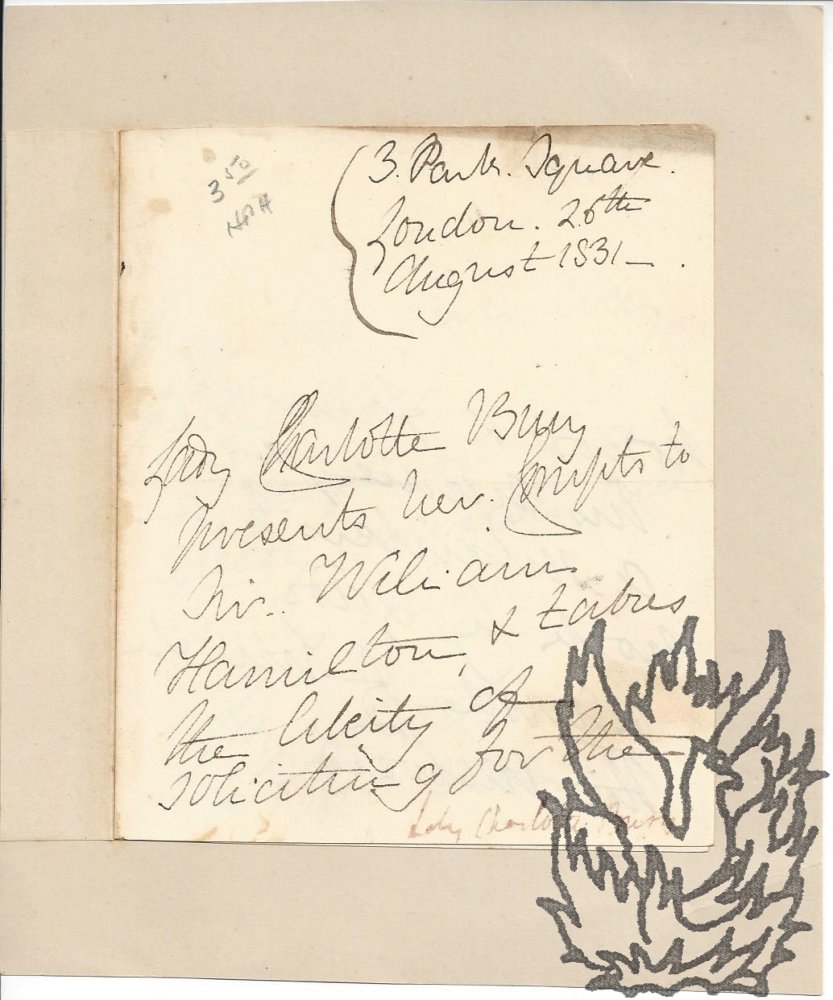 3 50/
HPH
3. Park. Square.
London. 26th
August 1831 -.
Lady Charlotte Bury
presents her. Compts to
Sir. William
Hamilton, & takes
the liberty of
soliciting for the
Lady Charlotte Bury